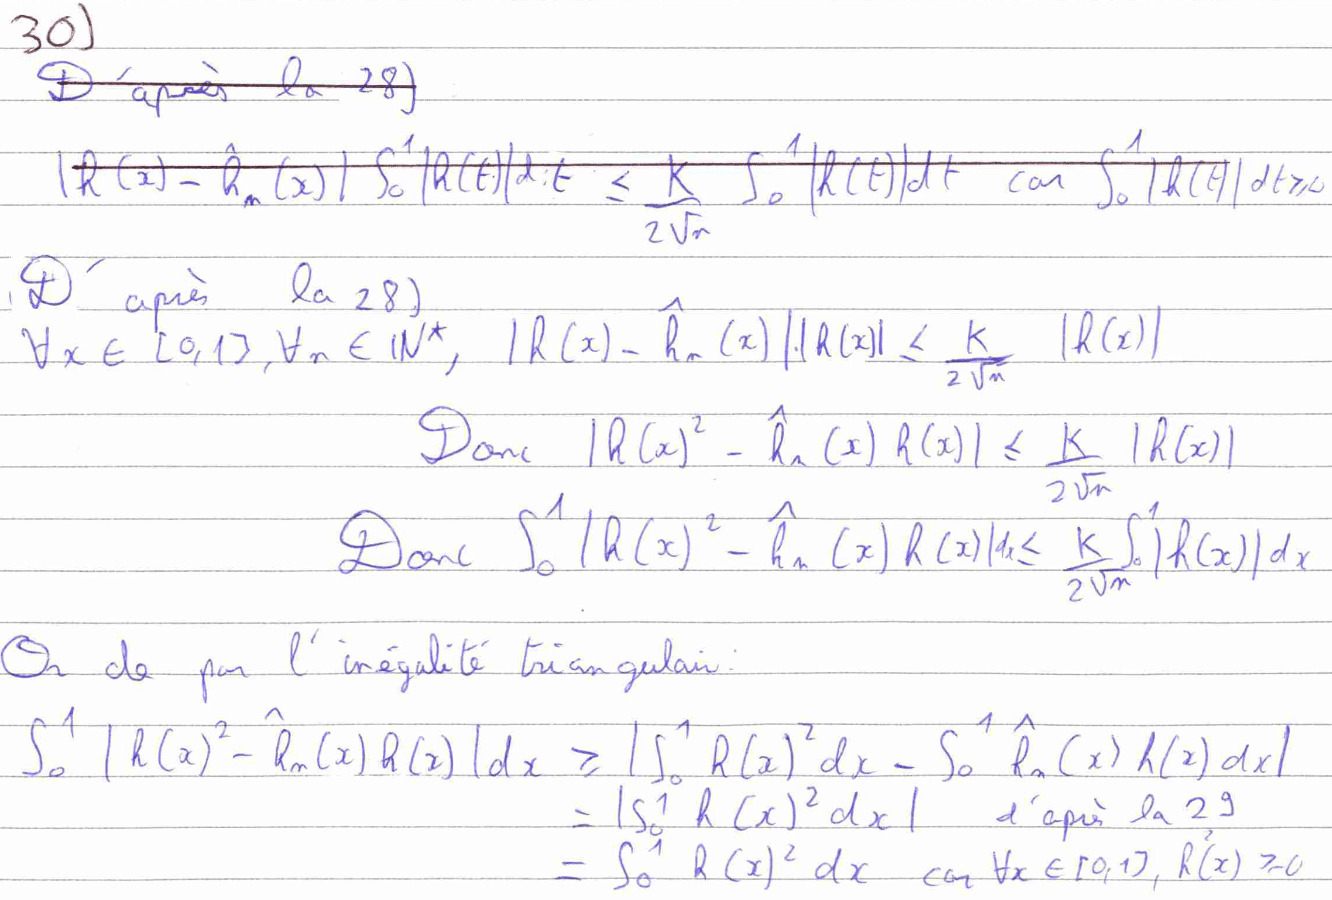 30)
D'après la 28)
|h(x) - ĥₙ(x)| ∫₀¹ |h(t)| dt ≤ K/(2√n) ∫₀¹ |h(t)| dt car ∫₀¹ |h(t)| dt ≥ 0
D'après la 28)
∀x ∈ [0,1], ∀n ∈ ℕ*, |h(x) - ĥₙ(x)|.|h(x)| ≤ K/(2√n) |h(x)|
Donc |h(x)² - ĥₙ(x) h(x)| ≤ K/(2√n) |h(x)|
Donc ∫₀¹ |h(x)² - ĥₙ(x) h(x)| dx ≤ K/(2√n) ∫₀¹ |h(x)| dx
Or de par l'inégalité triangulair:
∫₀¹ |h(x)² - ĥₙ(x) h(x)| dx ≥ |∫₀¹ h(x)² dx - ∫₀¹ ĥₙ(x) h(x) dx|
= |∫₀¹ h(x)² dx| d'après la 29
= ∫₀¹ h(x)² dx car ∀x ∈ [0,1], h²(x) ≥ 0